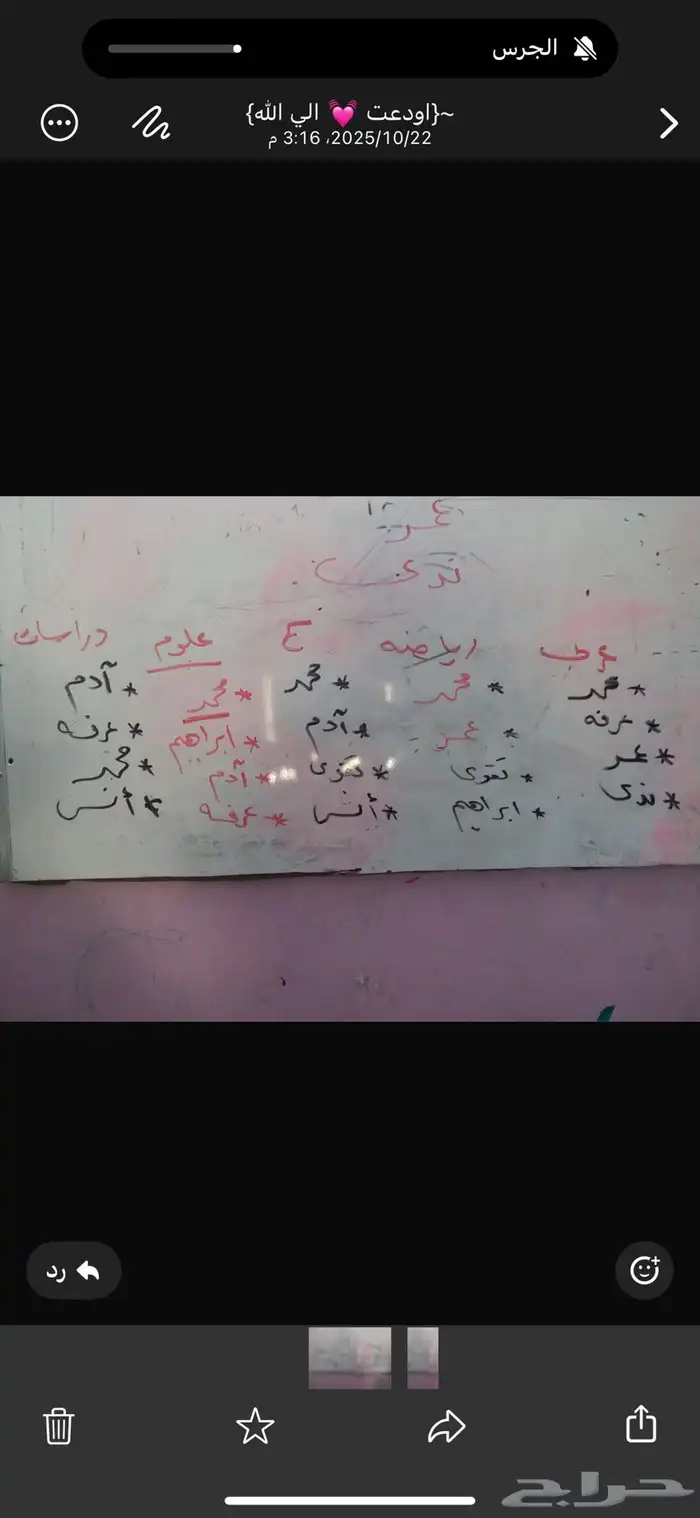 الجرس
~{اودعت 💓 الي الله}
2025/10/22، 3:16 م
عمر
ندى
عربي رياضه ع علوم دراسات
* محمد * محمد * محمد * محمد * آدم
* عرفه * عمر * آدم * ابراهيم * عرفه
* عمر * تقوى * تقوى * آدم * محمد
* ندى * ابراهيم * أنس * عرفه * أنس
رد
حراج